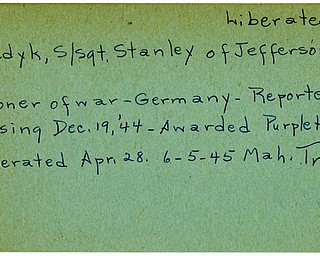 Liberate
dyk, S/sgt. Stanley of Jefferso
oner of war - Germany - Reporte
sing Dec. 19, '44 - Awarded Purple
erated Apr. 28. 6-5-45 Mah. Tr